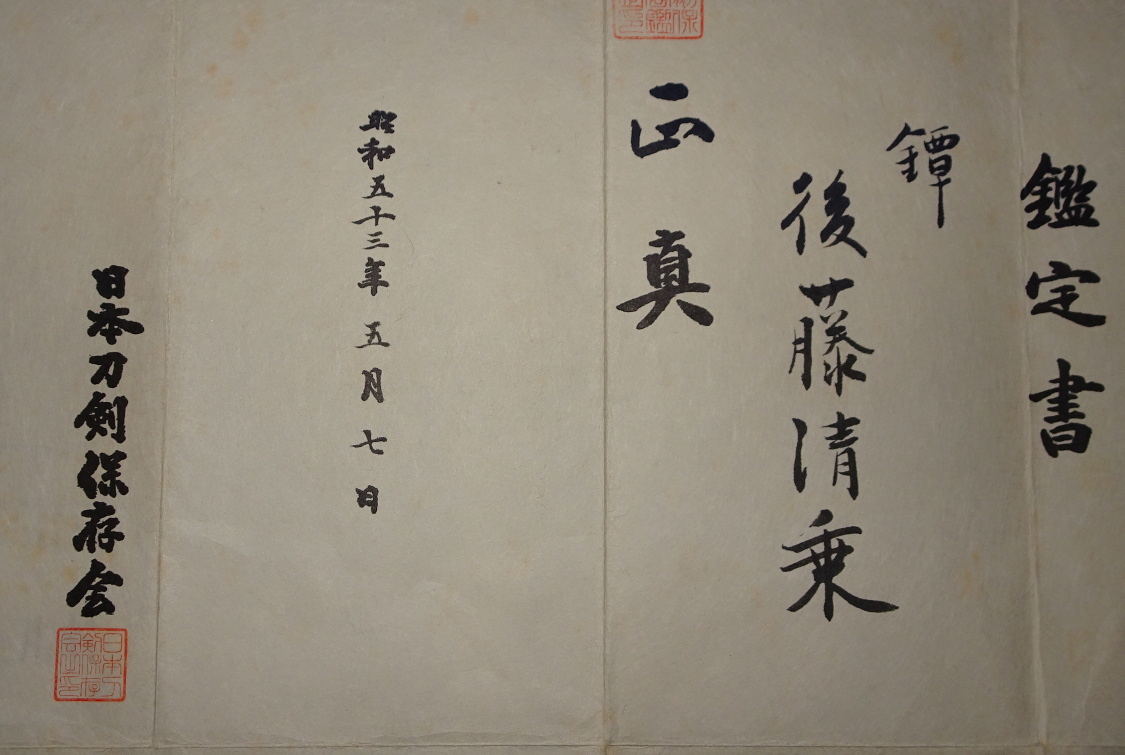 鑑定書
鐔
後藤清乗
正真
昭和五十三年 五月七日
日本刀剣保存会